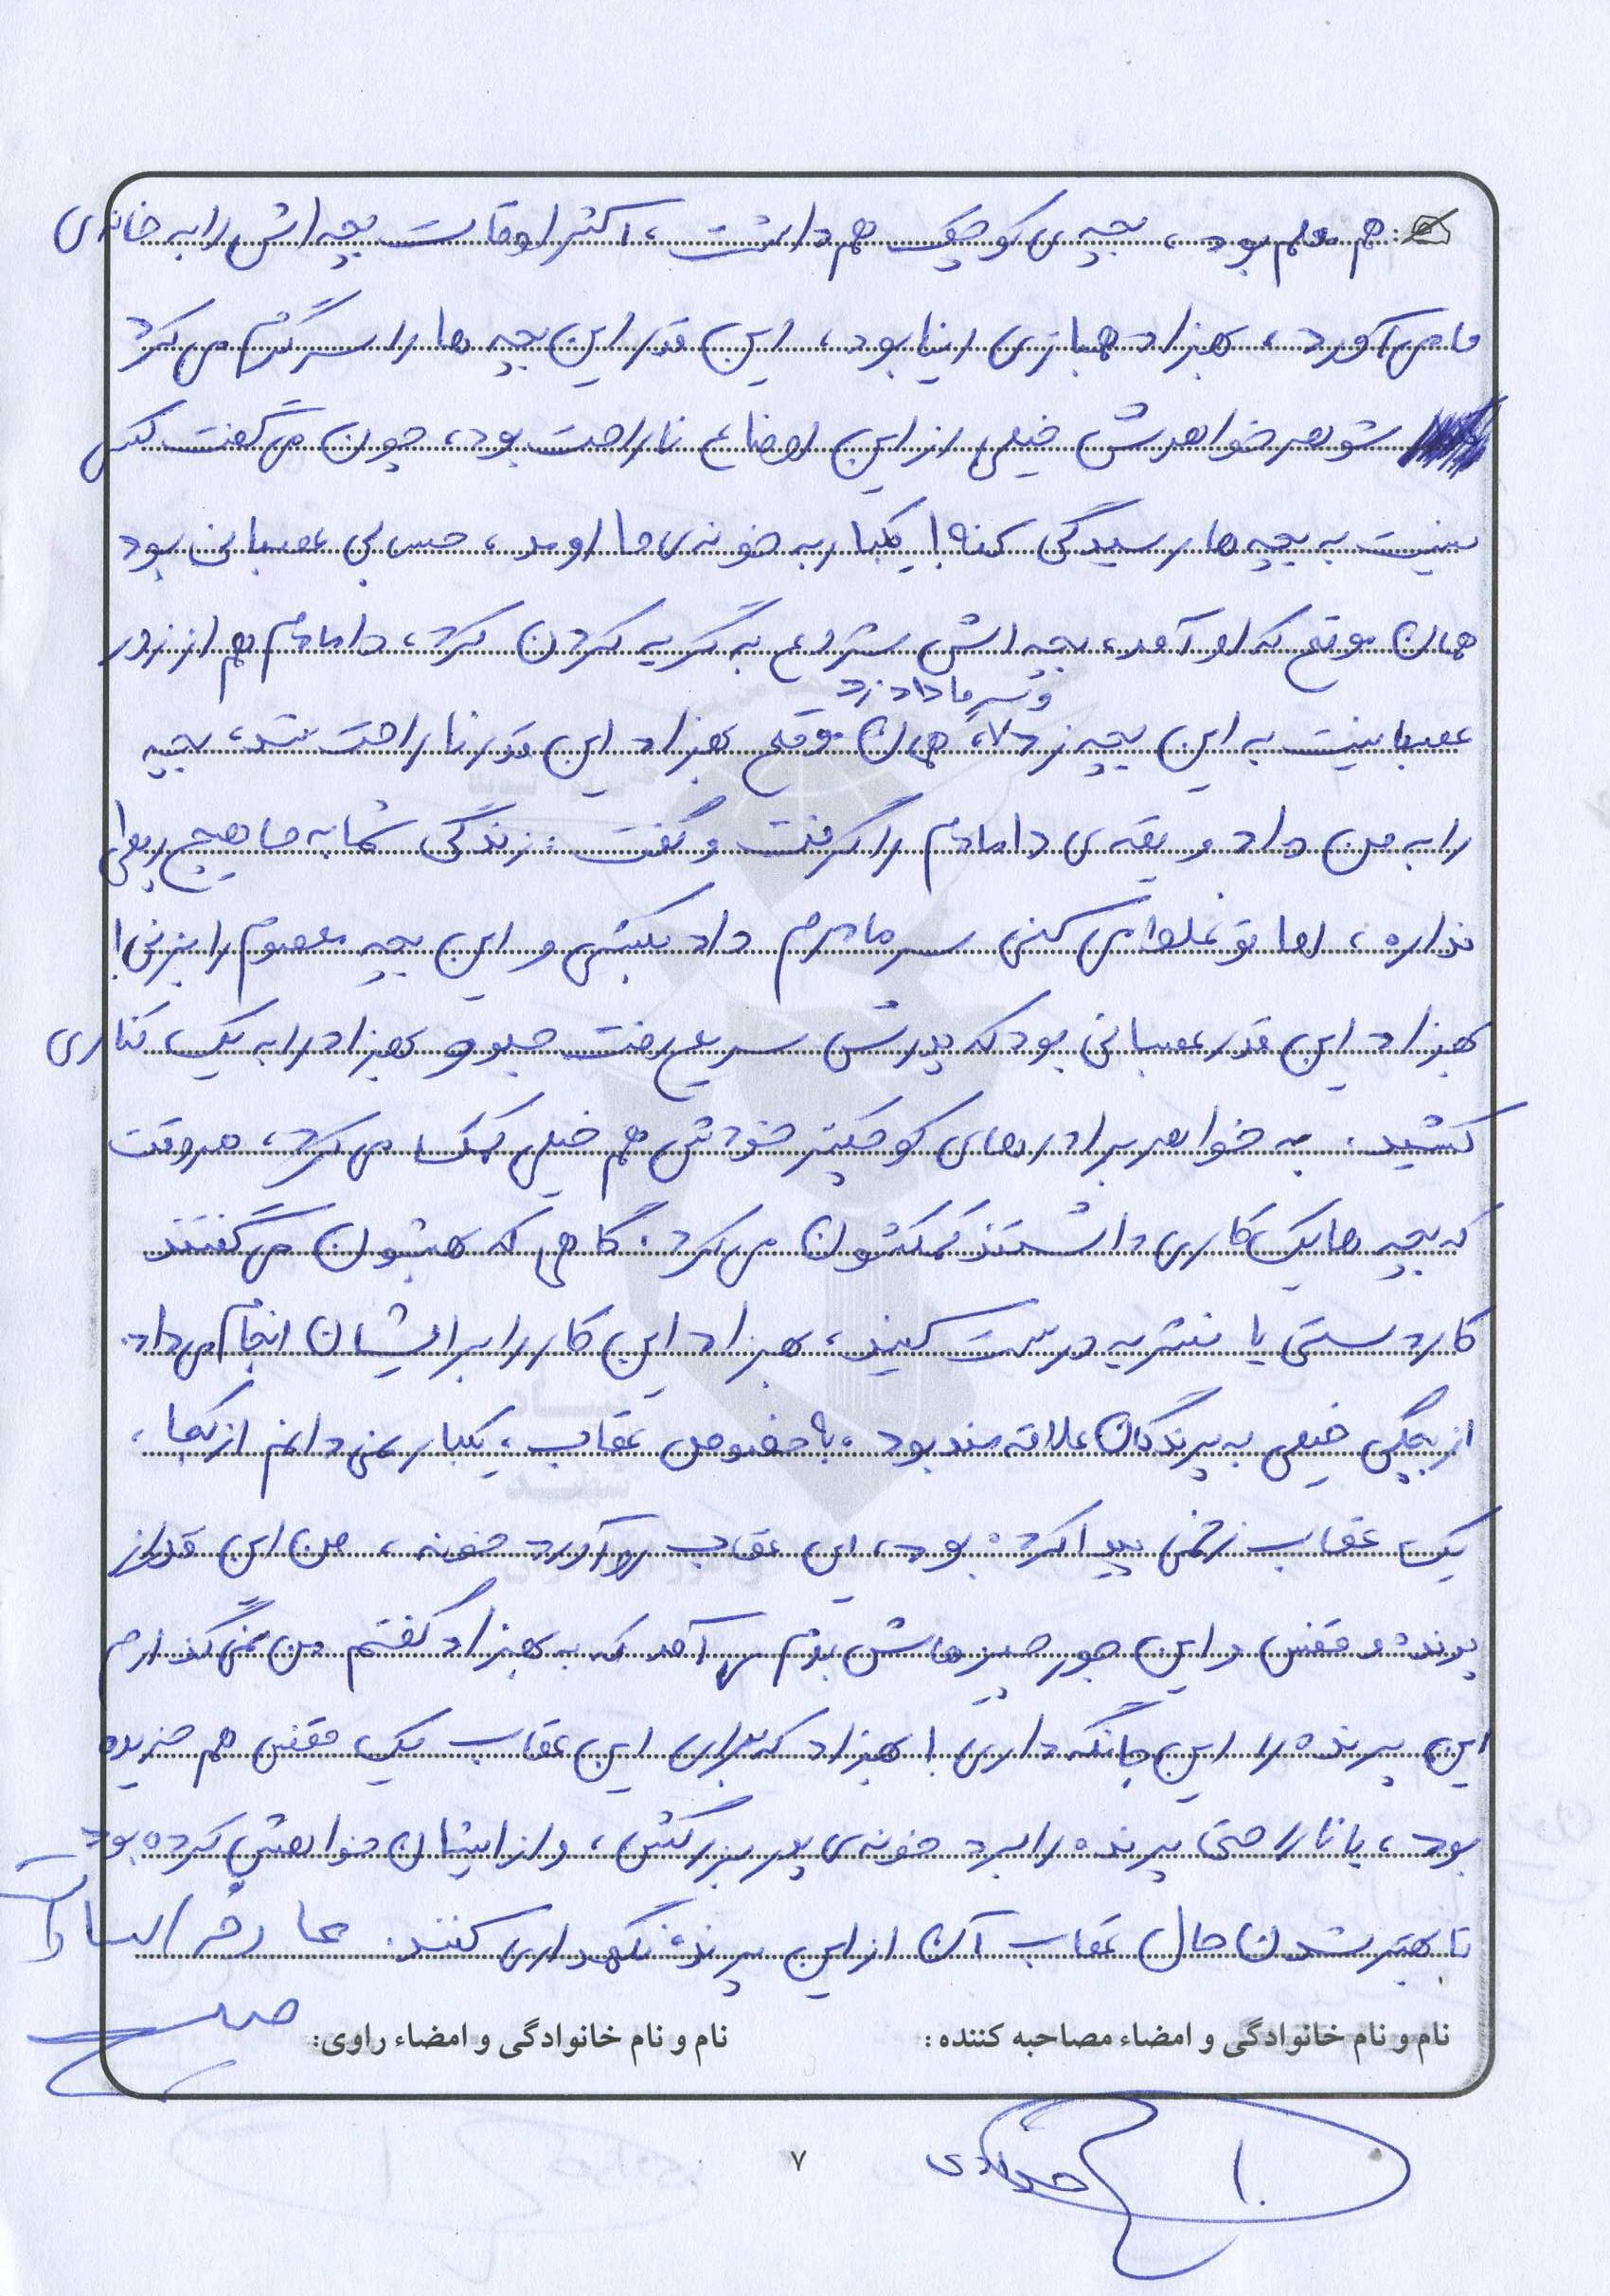 هم معلم بود، بچه‌ی کوچیک هم داشت، اکثر اوقات بچه‌اش را به خانه‌ی
ما می‌آورد، بهزاد همبازی اینا بود، این قدر این بچه ها را سرگرم می‌کرد
شوهر خواهرش خیلی از این اوضاع ناراحت بود، چون می‌گفت کسی
نیست به بچه ها رسیدگی کنه! یکبار به خونه‌ی ما اومد، حسابی عصبانی بود
همان موقع که او آمد، بچه‌اش شروع به گریه کردن کرد، دامادم هم از زور
و سر ما داد زد
عصبانیت به این بچه زد، همان موقع بهزاد این قدر ناراحت شد، بچه
را به من داد و یقه‌ی دامادم را گرفت و گفت: زندگی شما به ما هیچ ربطی
نداره، اما تو غلط می‌کنی سر مادرم داد بکشی و این بچه معصوم را بزنی!
بهزاد این قدر عصبانی بود که پدرش سریع رفت جلو و بهزاد را به یک کناری
کشید. به خواهر برادرهای کوچیکتر خودش هم خیلی کمک می‌کرد، هر وقت
که بچه ها یک کاری داشتند کمکشون می‌کرد. گاهی که بهشون می‌گفتند
کاردستی یا نشریه درست کنید، بهزاد این کار را برایشان انجام می‌داد.
از بچگی خیلی به پرندگان علاقه مند بود، با خصوص عقاب، یکبار نمی‌دانم از کجا،
یک عقاب زخمی پیدا کرده بود، این عقاب رو آورد خونه، من این قدر از
پرنده و قفس و این جور چیزهاش بدم می آمد که به بهزاد گفتم من نمی‌گذارم
این پرنده را این جا نگه داری! بهزاد که برای این عقاب یک قفس هم خریده
بود، با ناراحتی پرنده را برد خونه‌ی پدربزرگش، و از ایشان خواهش کرده بود
تا بهتر شدن حال عقاب آن از این پرنده نگهداری کنند. عارفه السادات
نام و نام خانوادگی و امضاء مصاحبه کننده: نام و نام خانوادگی و امضاء راوی:
۷